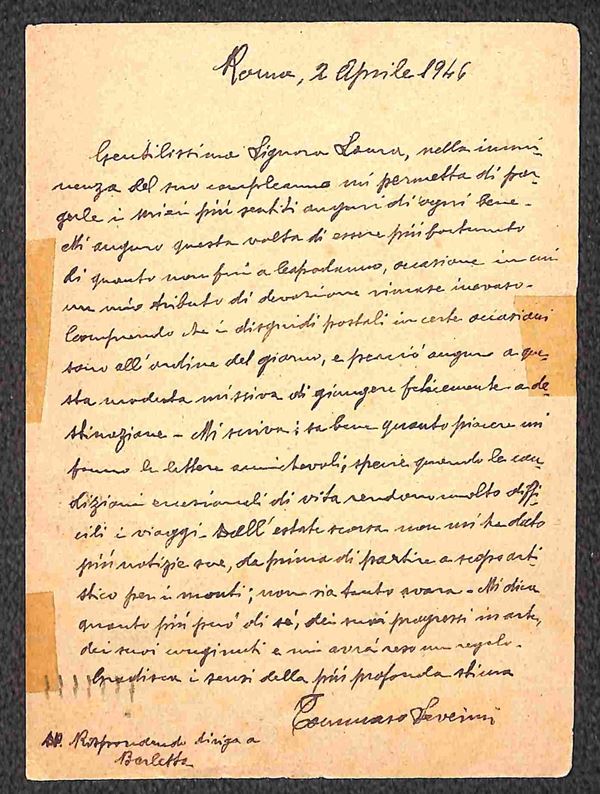 Roma, 2 Aprile 1946
Gentilissima Signora Laura, nella immi-
nenza del suo compleanno mi permetta di por-
gerle i miei più sentiti auguri di ogni bene -
Mi auguro questa volta di essere più fortunato
di quanto non fui a Capodanno, occasione in cui
un mio tributo di devozione rimase inevaso -
Comprendo che i disguidi postali in certe occasioni
sono all'ordine del giorno, e perciò auguro a que-
sta modesta missiva di giungere felicemente a de-
stinazione - Mi scriva; sa bene quanto piacere mi
fanno le lettere amichevoli, specie quando le con-
dizioni eccezionali di vita rendono molto diffi-
cili i viaggi - Dall'estate scorsa non mi ha dato
più notizie sue, da prima di partire a scopo arti-
stico per i monti; non sia tanto avara - Mi dica
quanto più può di sé, dei suoi progressi in arte,
dei suoi congiunti e mi avrà reso un regalo -
Gradisca i sensi della più profonda stima
Tommaso
Rispondendo diriga a
Barletta